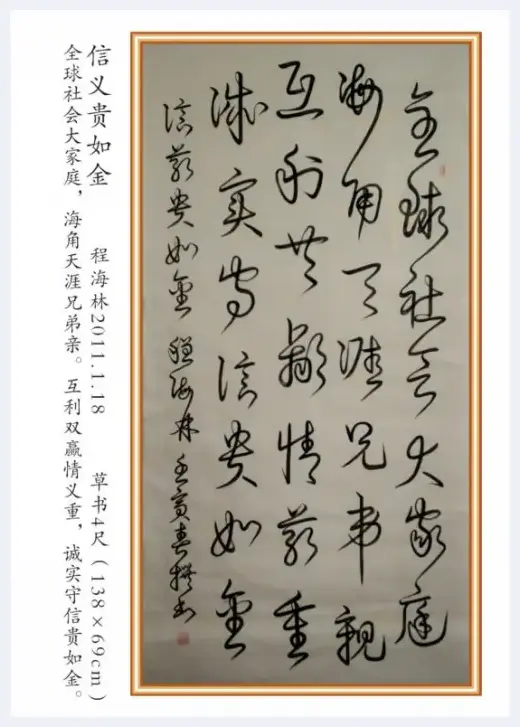 全球社会大家庭
海角天涯兄弟親
互利共赢情義重
诚实守信贵如金
信義贵如金 程海林
信义贵如金 程海林2011.1.18 草书4尺(138×69cm)
全球社会大家庭,海角天涯兄弟亲。互利双赢情义重,诚实守信贵如金。